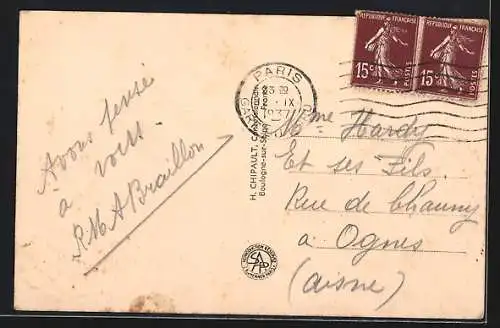 Avons pensé
à vous
R M A Braillon
H. CHIPAULT,
Boulogne-sur-Seine
PARIS
23 H
2 - IX
1937
GARE
REPUBLIQUE FRANÇAISE
15c
POSTES
REPUBLIQUE FRANÇAISE
15c
POSTES
Mme Hardy
Et ses Fils
Rue de Chauny
à Ognes
(Aisne)